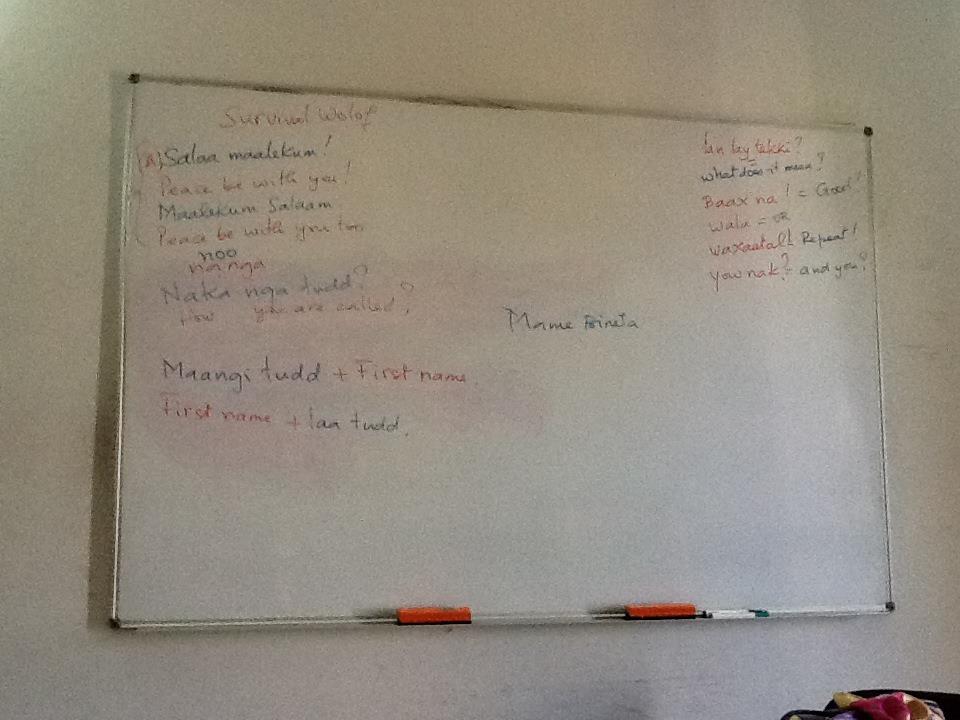 Survival Wolof
(a) Salaa maalekum!
Peace be with you!
Maalekum Salaam
Peace be with you too
noo
na nga
Naka nga tudd?
How you are called?
Maangi tudd + First name.
First name + laa tudd.
Mame
lan lay tekki?
what does it mean?
Baax na! = Good!
wala = OR
waxaat Repeat!
yow nak? = and you?